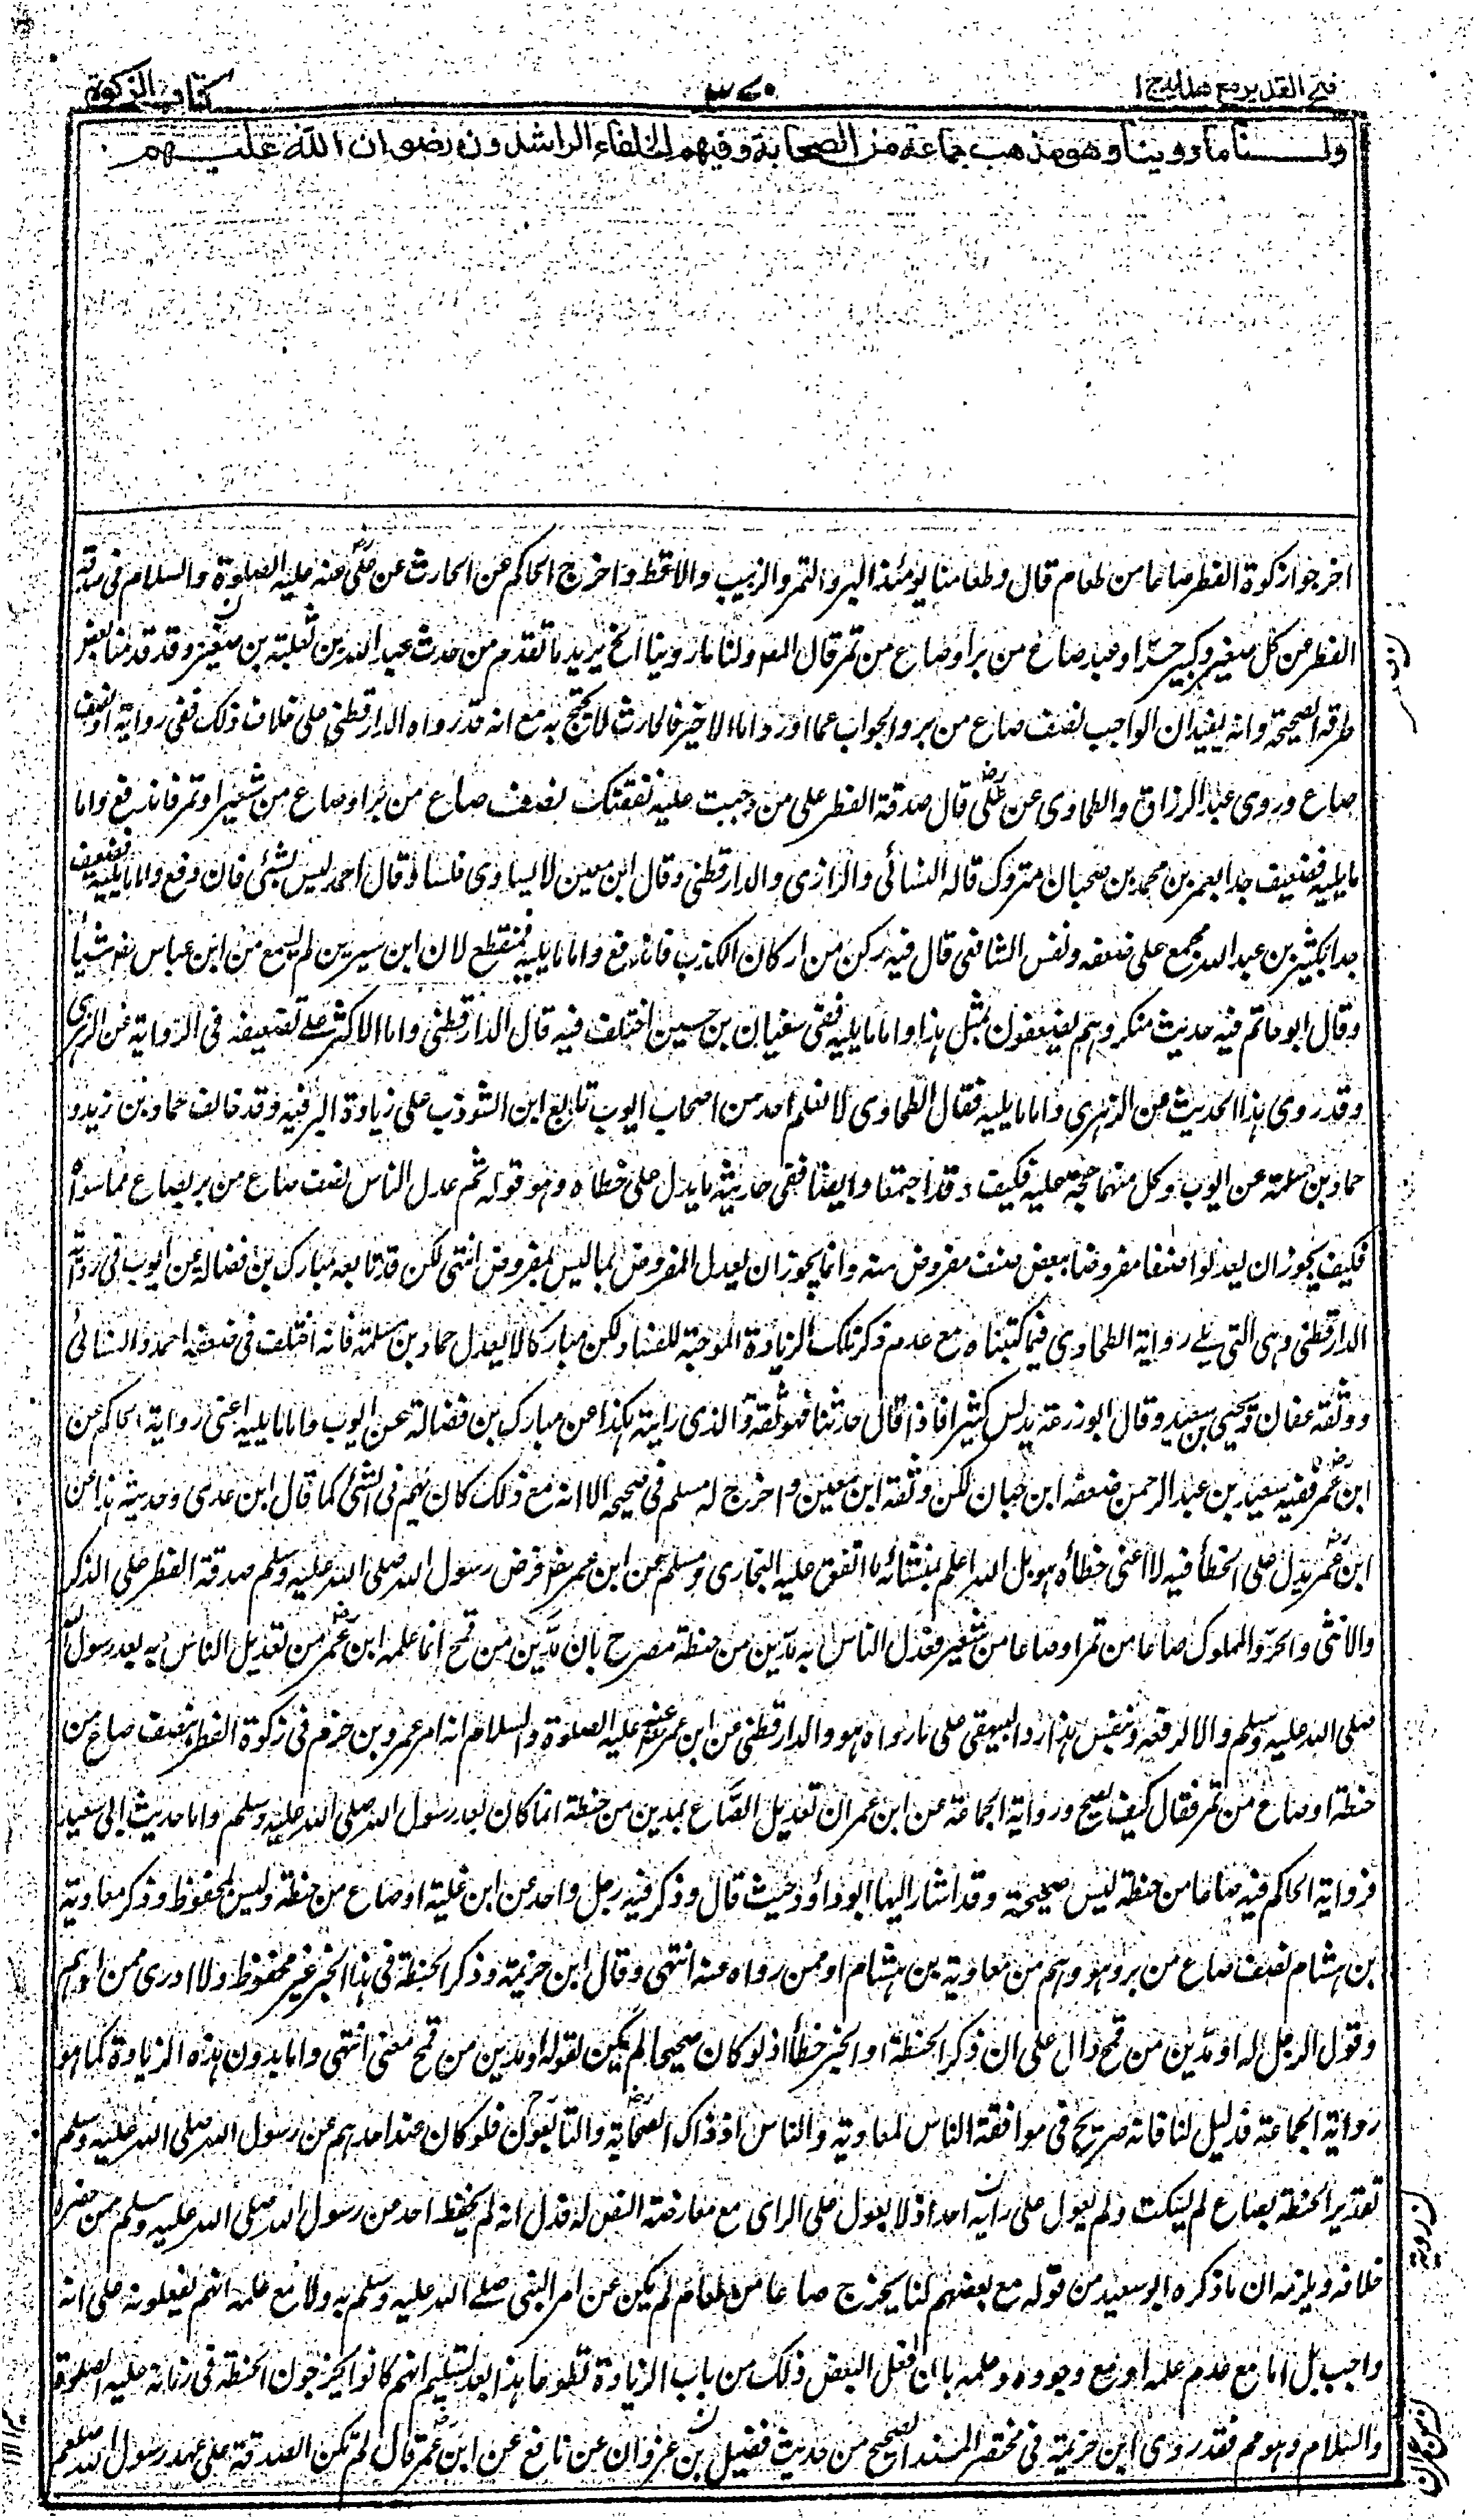 فتح القدير مع هدايه ج ١
٣٧٠
كتاب الزكوة
ولنا ما روينا وهو مذهب جماعة من الصحابة وفيهم الخلفاء الراشدون رضوان الله عليهم
اخرجوا زكوة الفطر صاعا من طعام قال وطعامنا يومئذ البر والتمر والزبيب والاقط واخرج الحاكم عن الحارث عن علي رض عنه عليه الصلوة والسلام في صدقة
الفطر عن كل صغير وكبير حر او عبد صاع من بر او صاع من تمر قال المص ولنا ما روينا الخ يريد ما تقدم من حديث عبد الله بن ثعلبة بن صغير وقد قدمنا بعض
طرقه الصحيحة وانه يفيد ان الواجب نصف صاع من بر والجواب عما اورد اما الاخير فالحارث لا يحتج به مع انه قد رواه الدارقطني على خلاف ذلك ففي رواية او نصف
صاع وروى عبد الرزاق والطحاوى عن علي رض قال صدقة الفطر على من وجبت عليه نفقتك نصف صاع من بر او صاع من شعير او تمر فاندفع واما
ما يليه فضعيف جدا بعمر بن محمد بن صهبان متروك قاله النسائى والرازى والدارقطنى وقال ابن معين لا يساوى فلسا وقال احمد ليس بشئ فاندفع واما ما يليه فضعيف
جدا بكثير بن عبد الله مجمع على ضعفه ونفس الشافعى قال فيه ركن من اركان الكذب فاندفع واما ما يليه فمنقطع لان ابن سيرين لم يسمع من ابن عباس رض شيأ
وقال ابو حاتم فيه حديث منكر وهم يضعفون بمثل هذا واما ما يليه ففى سفيان بن حسين اختلف فيه قال الدارقطنى واما الاكثر على تضعيفه فى الرواية عن الزهرى
وقد روى هذا الحديث عن الزهرى واما ما يليه فقال الطحاوى لا نعلم احد من اصحاب ايوب تابع ابن الشوذب على زيادة البر فيه وقد خالف حماد بن زيد و
حماد بن سلمة عن ايوب وكل منهما حجة عليه فكيف وقد اجتمعا وايضا ففى حديثه ما يدل على خطاه وهو قوله ثم عدل الناس نصف صاع من بر بصاع مما سواه
فكيف يجوز ان يعدلوا صنفا مفروضا ببعض صنف مفروض منه وانما يجوز ان يعدل المفروض بما ليس بمفروض انتهى لكن قد تابعه مبارك بن فضالة عن ايوب فى رواية
الدارقطنى وهى التى تلى رواية الطحاوى فيما كتبناه مع عدم ذكر تلك الزيادة الموجبة للفساد لكن مباركا لا يعدل حماد بن سلمة فانه اختلف فى ضعفه احمد والنسائى
ووثقه عفان ويحيى بن سعيد وقال ابو زرعة يدلس كثيرا فاذا قال حدثنا فهو ثقة والذى رأيته هكذا عن مبارك بن فضالة عن ايوب واما ما يليه اعنى رواية الحاكم عن
ابن عمر رض ففيه سعيد بن عبد الرحمن ضعفه ابن حبان لكن وثقه ابن معين واخرج له مسلم فى صحيحه الا انه مع ذلك كان يهم فى الشئ كما قال ابن عدى وحديثه هذا عن
ابن عمر رض يدل على الخطأ فيه لا اعنى خطأه هو بل الله اعلم بمنشائه ما اتفق عليه البخارى ومسلم عن ابن عمر رض فرض رسول الله صلى الله عليه وسلم صدقة الفطر على الذكر
والانثى والحر والمملوك صاعا من تمر او صاعا من شعير فعدل الناس به مدين من حنطة مصرح بان مدين من قمح انما علمه ابن عمر رض من تعديل الناس به بعد رسول الله
صلى الله عليه وسلم والا لرفعه وبنفس هذا رد البيهقى على ما رواه هو والدارقطنى عن ابن عمر عنه عليه الصلوة والسلام انه امر عمرو بن حزم فى زكوة الفطر بنصف صاع من
حنطة او صاع من تمر فقال كيف يصح ورواية الجماعة عن ابن عمر ان تعديل الصاع بمدين من حنطة انما كان بعد رسول الله صلى الله عليه وسلم واما حديث ابى سعيد
فرواية الحاكم فيه صاعا من حنطة ليس صحيحة وقد اشار اليها ابو داؤد حيث قال وذكر فيه رجل واحد عن ابن علية او صاع من حنطة وليس بمحفوظ وذكر معاوية
بن هشام نصف صاع من بر وهو وهم من معاوية بن هشام او ممن رواه عنه انتهى وقال ابن خزيمة وذكر الحنطة فى هذا الخبر غير محفوظ ولا ادرى ممن الوهم
وقول الرجل له او مدين من قمح دال على ان ذكر الحنطة اول الخبر خطأ اذ لو كان صحيحا لم يكن لقوله او مدين من قمح معنى انتهى واما بدون هذه الزيادة كما هو
رواية الجماعة فدليل لنا فانه صريح فى موافقة الناس لمعاوية والناس اذ ذاك الصحابة والتابعون فلو كان عند احدهم عن رسول الله صلى الله عليه وسلم
تقدير الحنطة بصاع لم يسكت ولم يعول على رايه احد اذ لا يعول على الراى مع معارضة النص له فدل انه لم يحفظ احد من رسول الله صلى الله عليه وسلم ممن حضره
خلافه ويلزمه ان ما ذكره ابو سعيد من قوله مع بعضهم كنا نخرج صاعا من طعام لم يكن عن امر النبى صلے الله عليه وسلم به ولا مع علمه انهم يفعلونه على انه
واجب بل اما مع عدم علمه او مع وجوده وعلمه بان فعل البعض ذلك من باب الزيادة تطوعا هذا بعد تسليم انهم كانوا يخرجون الحنطة فى زمانه عليه الصلوة
والسلام وهو مم فقد روى ابن خزيمة فى مختصر المسند الصحيح من حديث فضيل بن غزوان عن نافع عن ابن عمر رض قال لم تكن الصدقة على عهد رسول الله صلعم